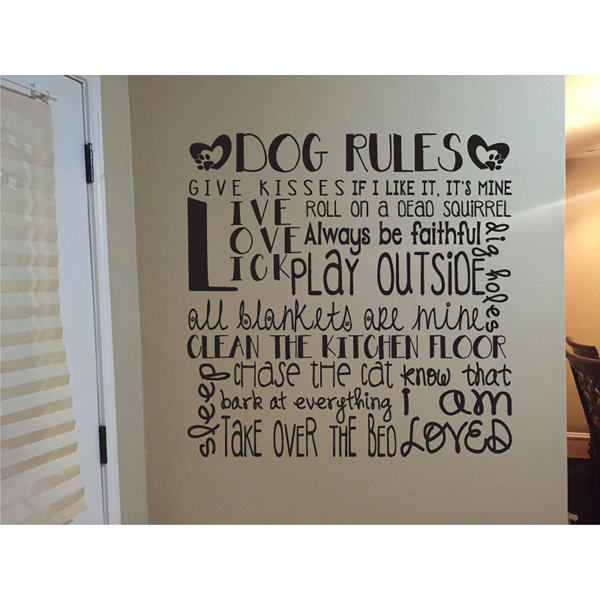 DOG RULES
GIVE KISSES IF I LIKE IT, IT'S MINE
LIVE LOVE LICK
ROLL ON A DEAD SQUIRREL
Always be faithful
PLAY OUTSIDE
dig holes
all blankets are mine
CLEAN THE KITCHEN FLOOR
sleep
CHASE THE CAT know that
bark at everything i am
TAKE OVER THE BED LOVED